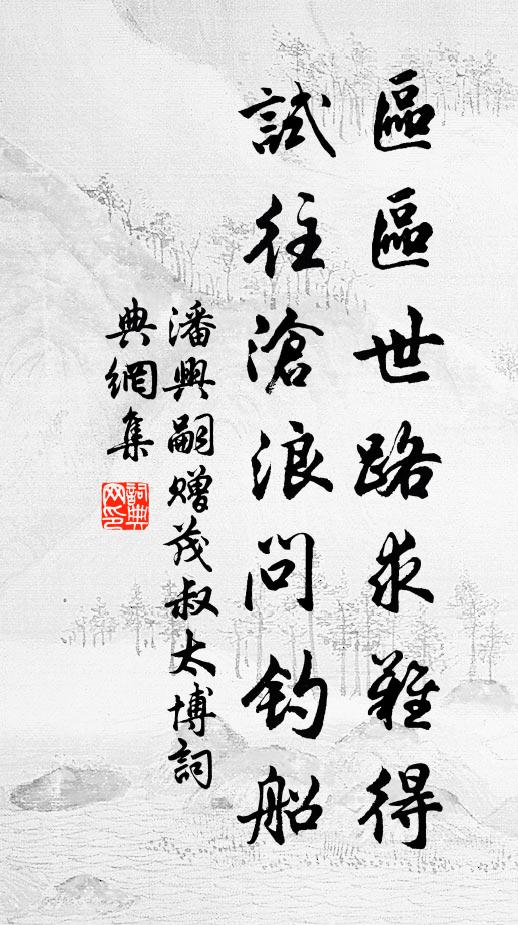 區區世路求難得
試往滄浪問釣船
潘興嗣贈茂叔太博詞
典網集
詞典
网印